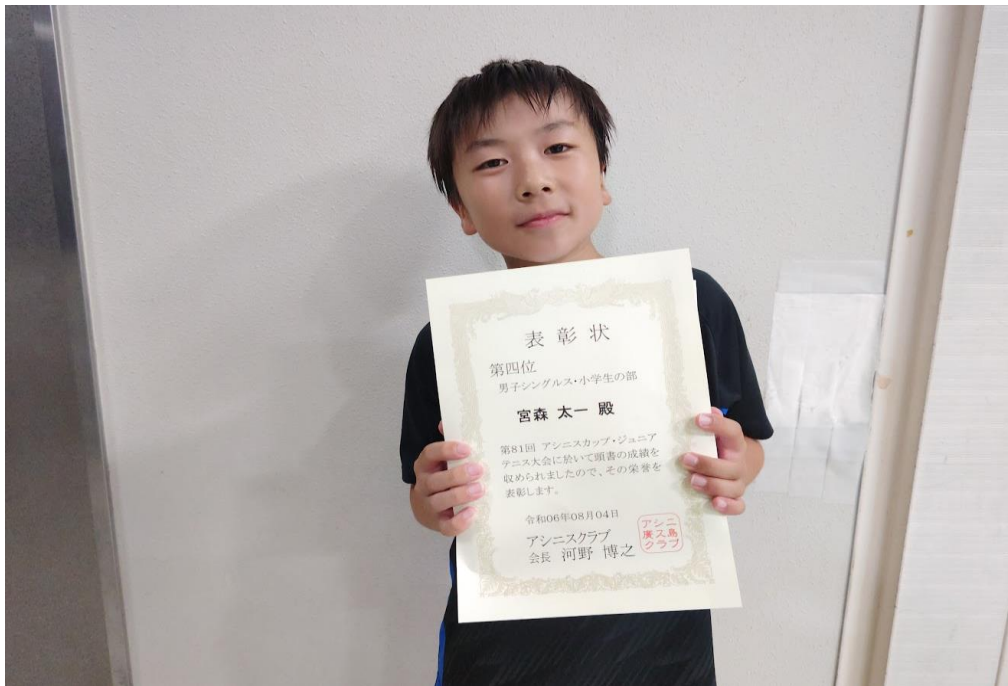 表彰状
第四位
男子シングルス・小学生の部
宮森 太一 殿
第81回 アシニスカップ・ジュニア
テニス大会に於いて頭書の成績を
収められましたので、その栄誉を
表彰します。
令和06年08月04日
アシニスクラブ
会長 河野 博之
アシニ
廣ス島
クラブ